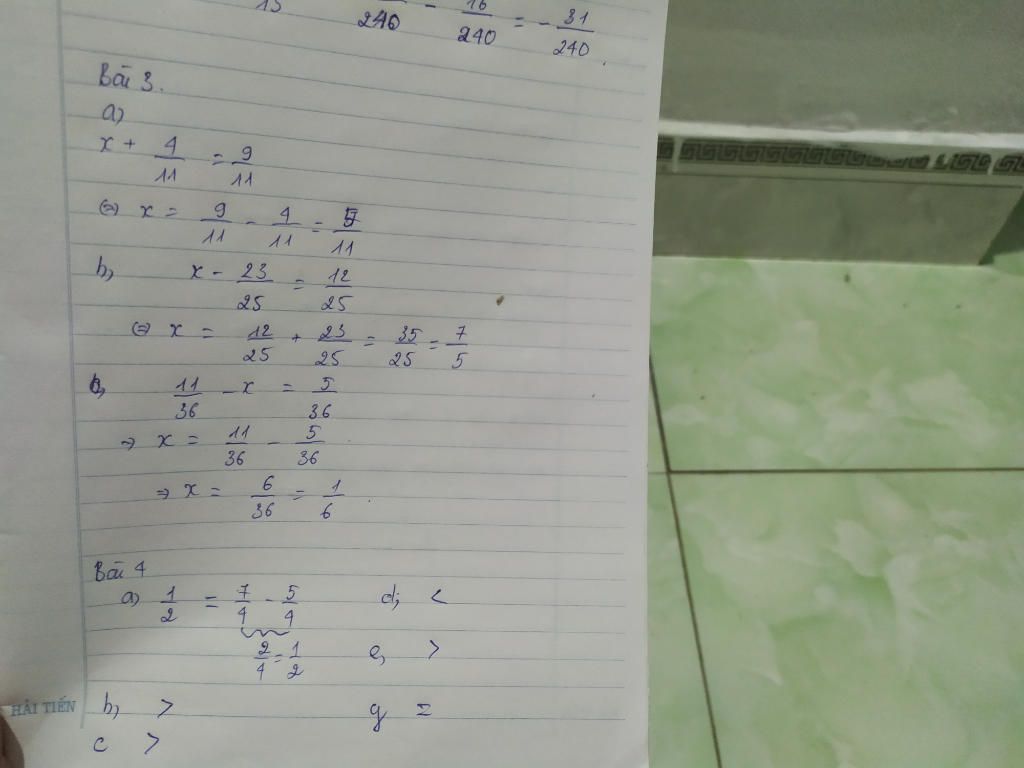 15 240 - 16/240 = - 31/240.
Bài 3.
a,
x + 4/11 = 9/11
<=> x = 9/11 - 4/11 = 5/11
b, x - 23/25 = 12/25
<=> x = 12/25 + 23/25 = 35/25 = 7/5
c, 11/36 - x = 5/36
=> x = 11/36 - 5/36
=> x = 6/36 = 1/6.
Bài 4
a) 1/2 = 7/4 - 5/4 d, <
2/4 = 1/2 e, >
b, > g =
c >
HẢI TIẾN